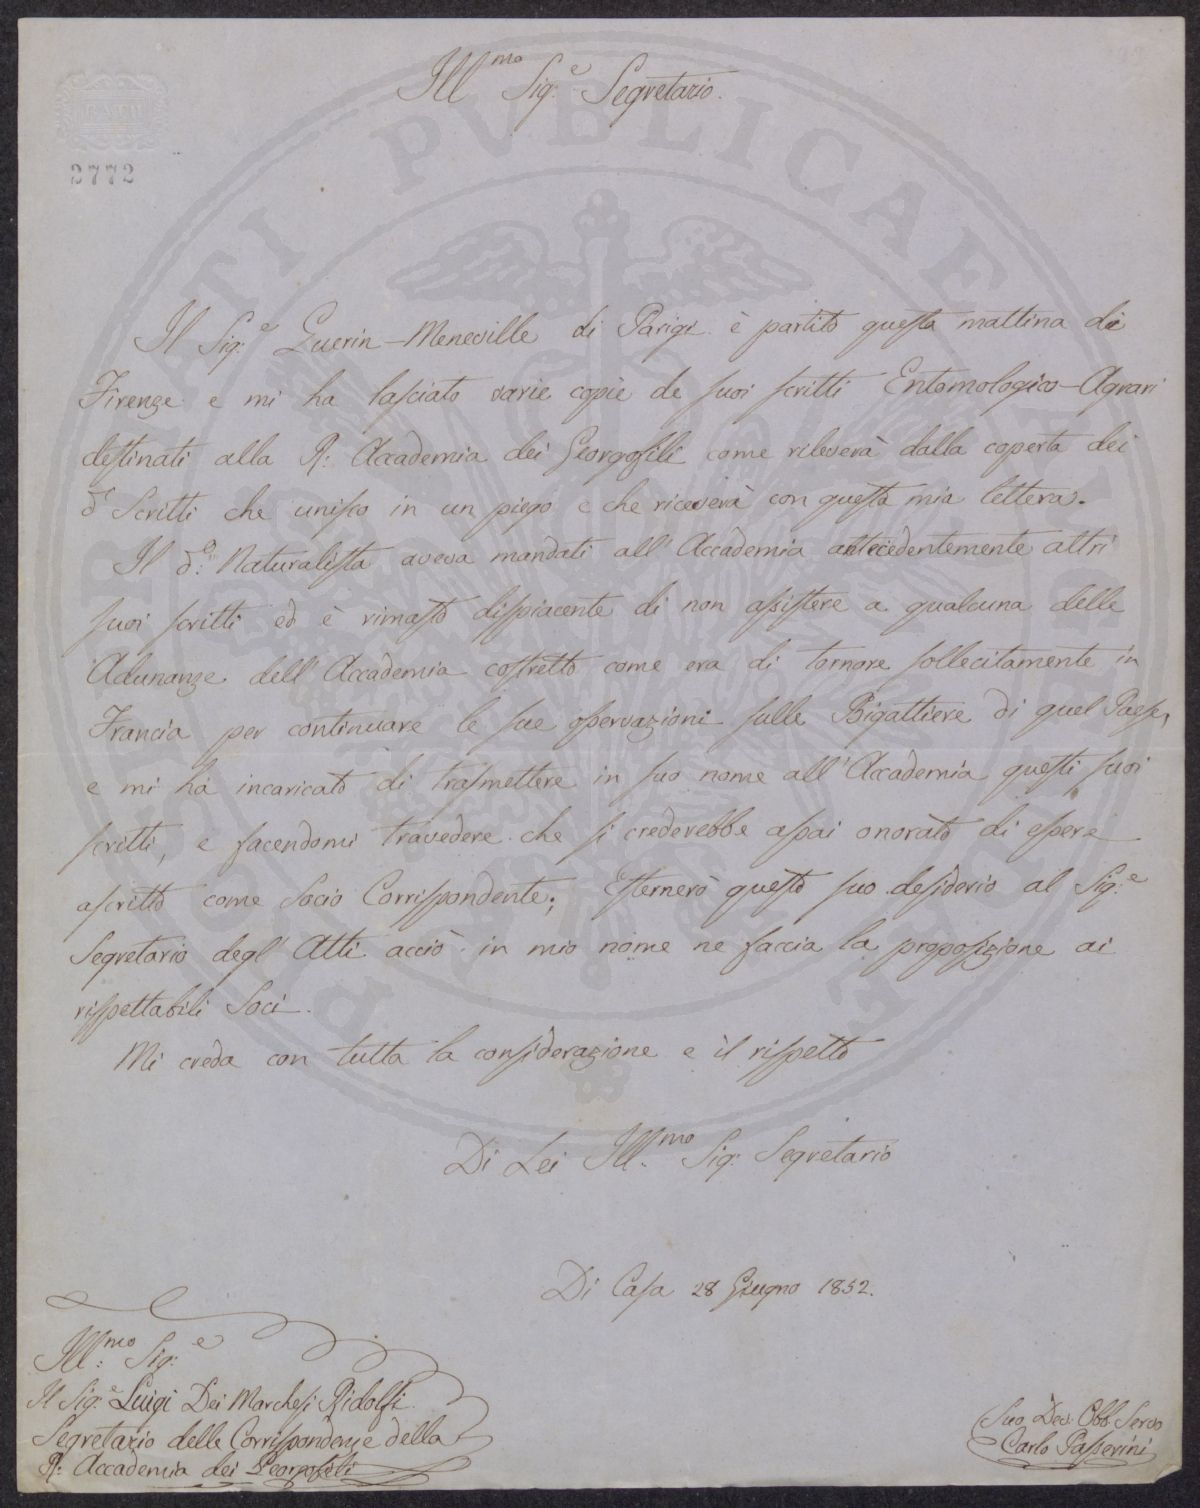 2772
Ill.mo Sig.e Segretario.
Il Sig.e Guerin-Meneville di Parigi è partito questa mattina di
Firenze e mi ha lasciato varie copie de suoi scritti Entomologico-Agrari
destinati alla R: Accademia dei Georgofili come rileverà dalla coperta dei
di Scritti che unisco in un piego e che riceverà con questa mia lettera.
Il d.o Naturalista aveva mandati all'Accademia antecedentemente altri
suoi scritti ed è rimasto dispiacente di non assistere a qualcuna delle
Adunanze dell'Accademia costretto come era di tornare sollecitamente in
Francia per continuare le sue osservazioni sulle Bigattiere di quel Paese,
e mi ha incaricato di trasmettere in suo nome all'Accademia questi suoi
scritti, e facendomi travedere che si crederebbe assai onorato di essere
ascritto come Socio Corrispondente; Esternerò questo suo desiderio al Sig.e
Segretario degl'Atti acciò in mio nome ne faccia la proposizione ai
rispettabili Soci.
Mi creda con tutta la considerazione e il rispetto
Di Lei Ill.mo Sig: Segretario
Di Casa 28 Giugno 1852.
Ill.mo Sig.e
Il Sig.e Luigi Dei Marchesi Ridolfi
Segretario delle Corrispondenze della
R: Accademia dei Georgofili
Suo Dev. Obb. Servo
Carlo Passerini